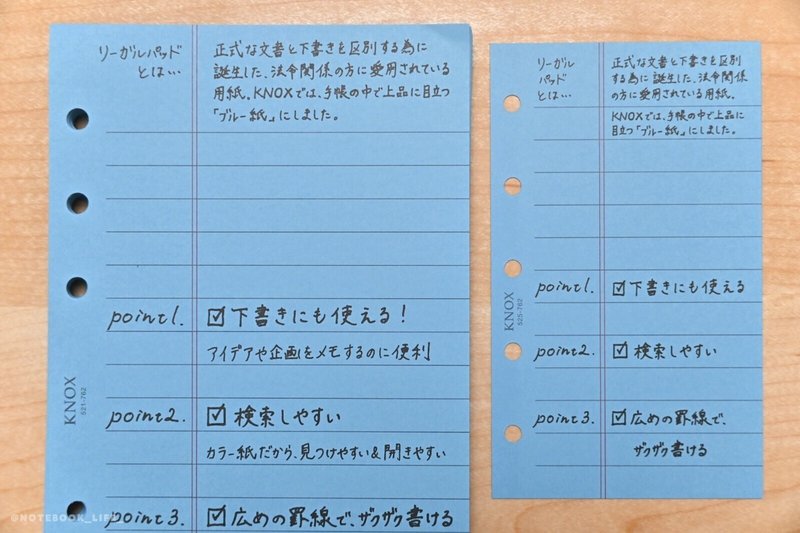 リーガルパッド
とは…
正式な文書と下書きを区別する為に
誕生した、法令関係の方に愛用されている
用紙。KNOXでは、手帳の中で上品に目立つ
「ブルー紙」にしました。
point1.
☑下書きにも使える!
アイデアや企画をメモするのに便利
point2.
☑検索しやすい
カラー紙だから、見つけやすい&開きやすい
point3.
☑広めの罫線で、ザクザク書ける
KNOX
521-762
@NOTEBOOK_LIF
リーガル
パッド
とは…
正式な文書と下書きを区別
する為に誕生した、法令関係
の方に愛用されている用紙。
KNOXでは、手帳の中で上品に
目立つ「ブルー紙」にしました。
point1.
☑下書きにも使える
point2.
☑検索しやすい
point3.
☑広めの罫線で、
ザクザク書ける
KNOX
525-762